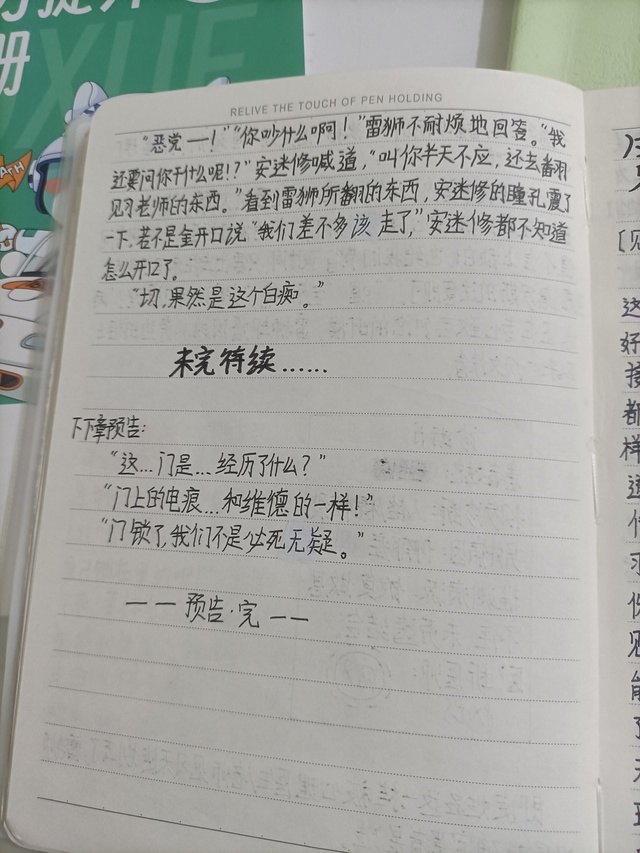 力提升
册
XUE
RELIVE THE TOUCH OF PEN HOLDING
“恶党——！”“你吵什么啊！”雷狮不耐烦地回答。“我
还要问你干什么呢！？”安迷修喊道，“叫你半天不应，还去翻
见习老师的东西。”看到雷狮所翻的东西，安迷修的瞳孔震了
一下，若不是金开口说“我们差不多该走了，”安迷修都不知道
怎么开口了。
“切，果然是这个白痴。”
未完待续……
下下章预告：
“这…门是…经历了什么？”
“门上的电痕…和维德的一样！”
“门锁了，我们不是必死无疑。”
——预告·完——
[见
这
好
接
都
样